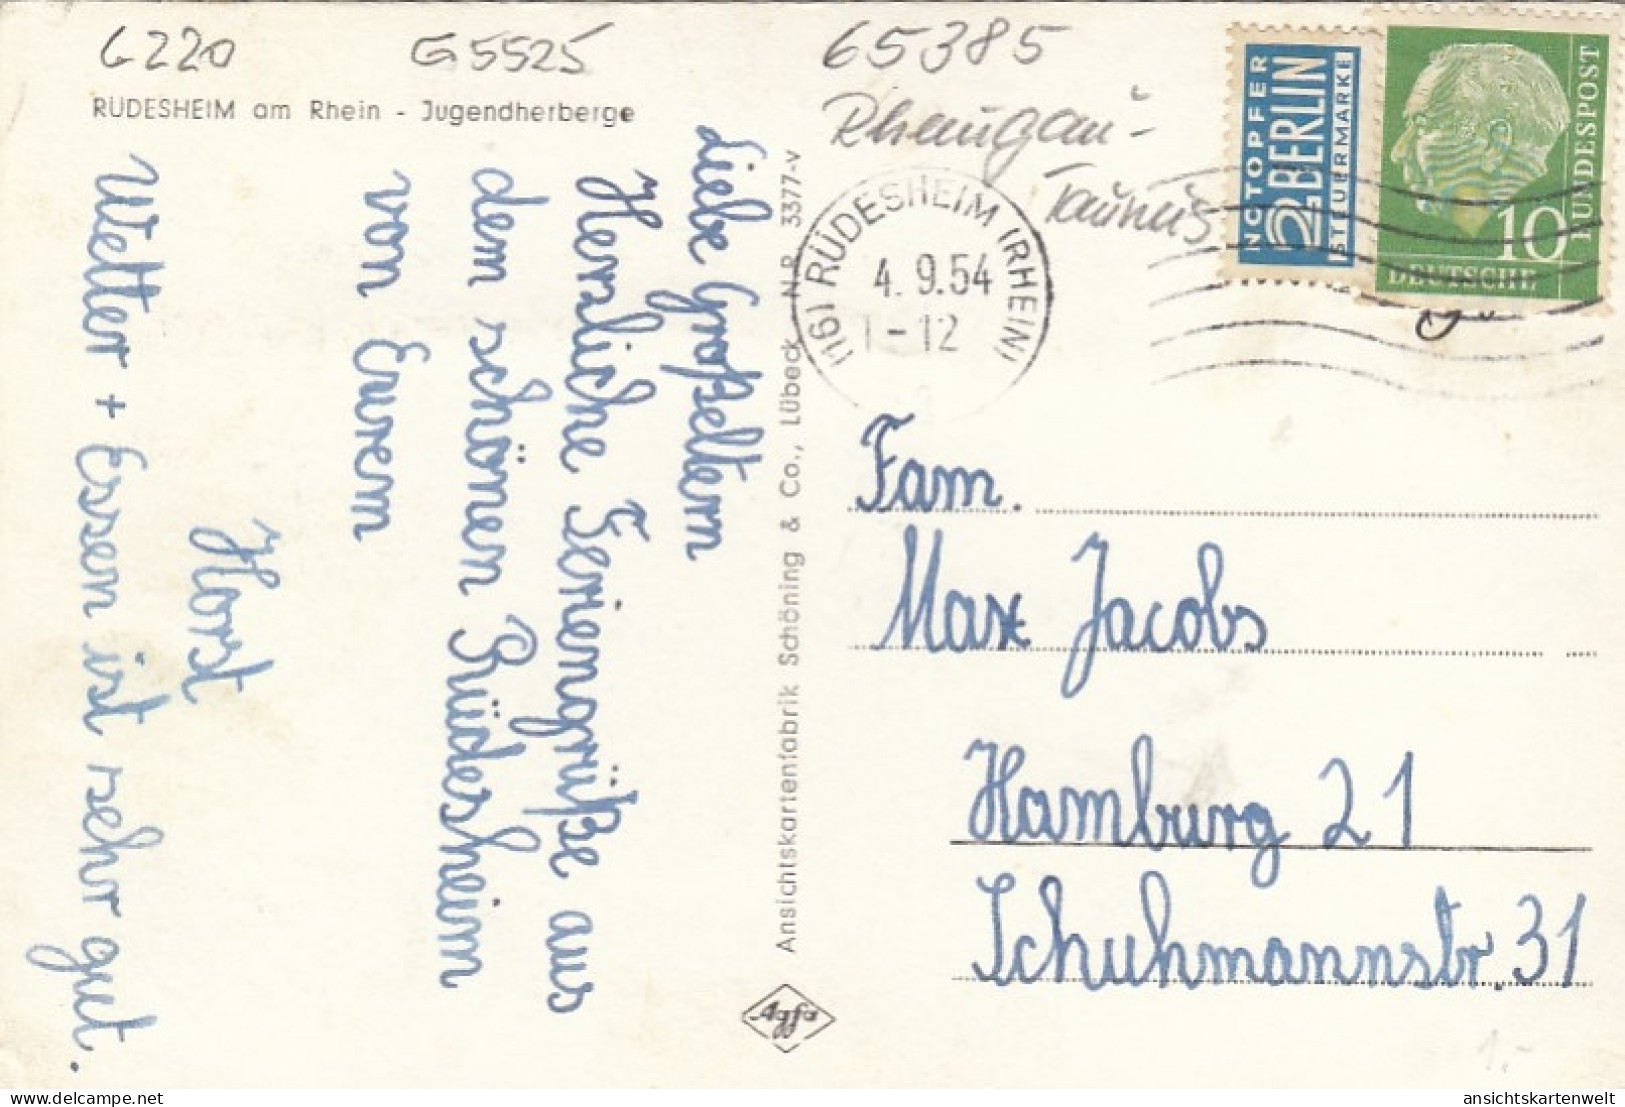 6220 G5525 65385
RÜDESHEIM am Rhein - Jugendherberge
Rheingau-
Taunus
NOTOPFER
2 BERLIN
STEUERMARKE
DEUTSCHE
BUNDESPOST
10
(16) RÜDESHEIM (RHEIN)
4. 9.54
-12
Liebe Großeltern
Herzliche Feriengrüße aus
dem schönen Rüdesheim
von Eurem
Horst
Wetter + Essen ist sehr gut.
Ansichtskartenfabrik Schöning & Co., Lübeck N.R. 3377-v
Agfa
Fam.
Max Jacobs
Hamburg 21
Schuhmannstr. 31
1.-
hkm5of.com
ansichtskartenwelt